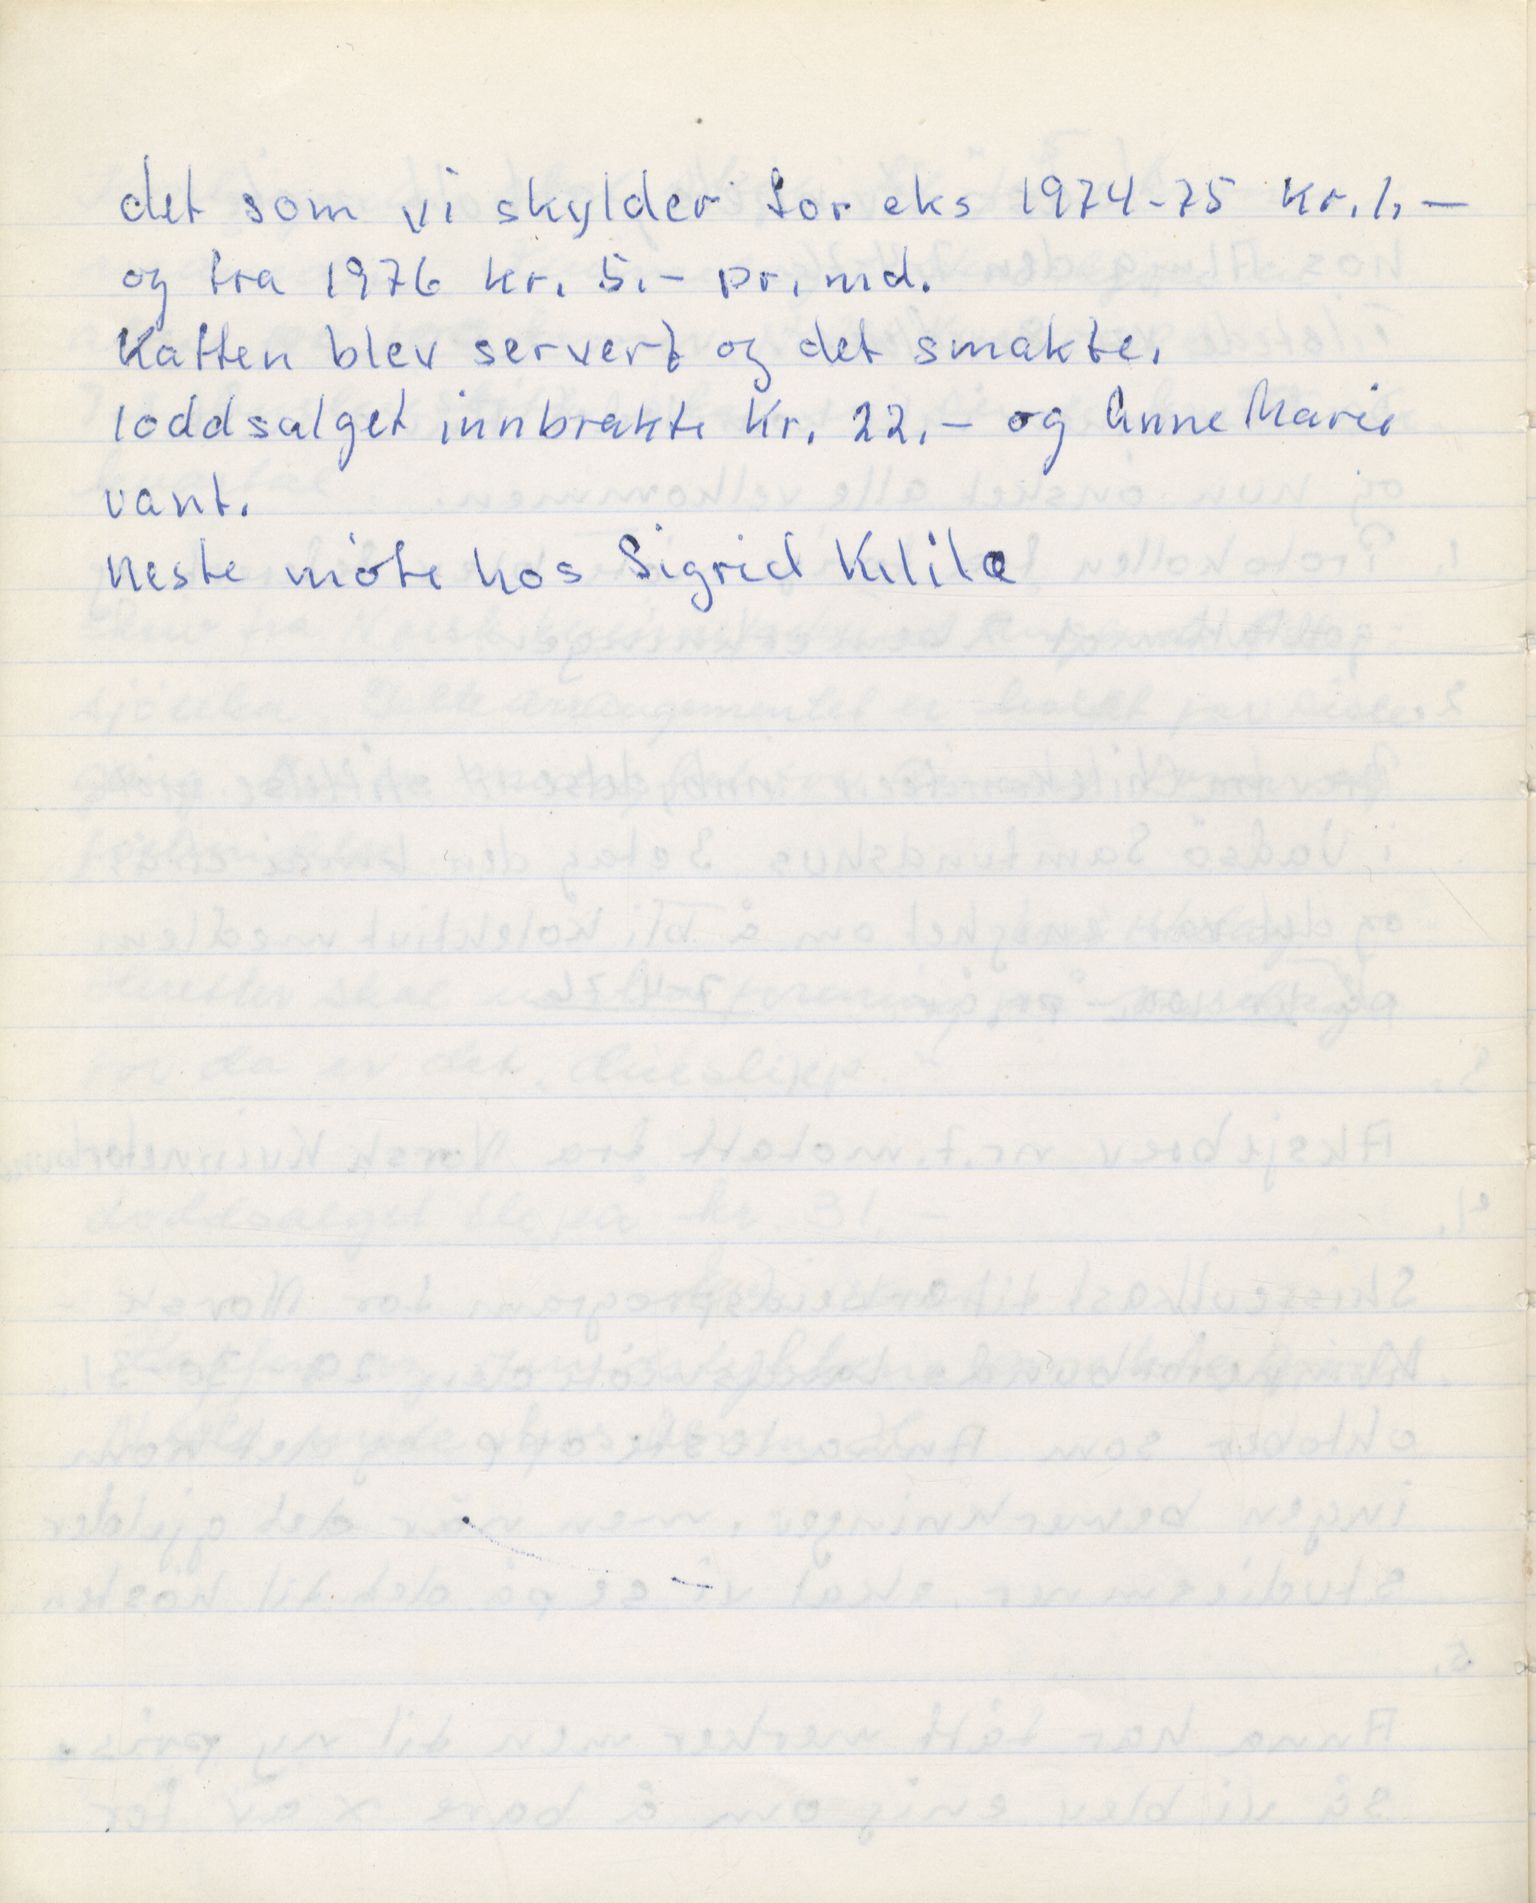 det som vi skylder for eks 1974-75 Kr. 1,-
og fra 1976 kr. 5.- pr. md.
Kaffen blev servert og det smakte.
loddsalget innbrakte Kr. 22.- og Anne Marie
vant.
Neste möte hos Sigrid Klila